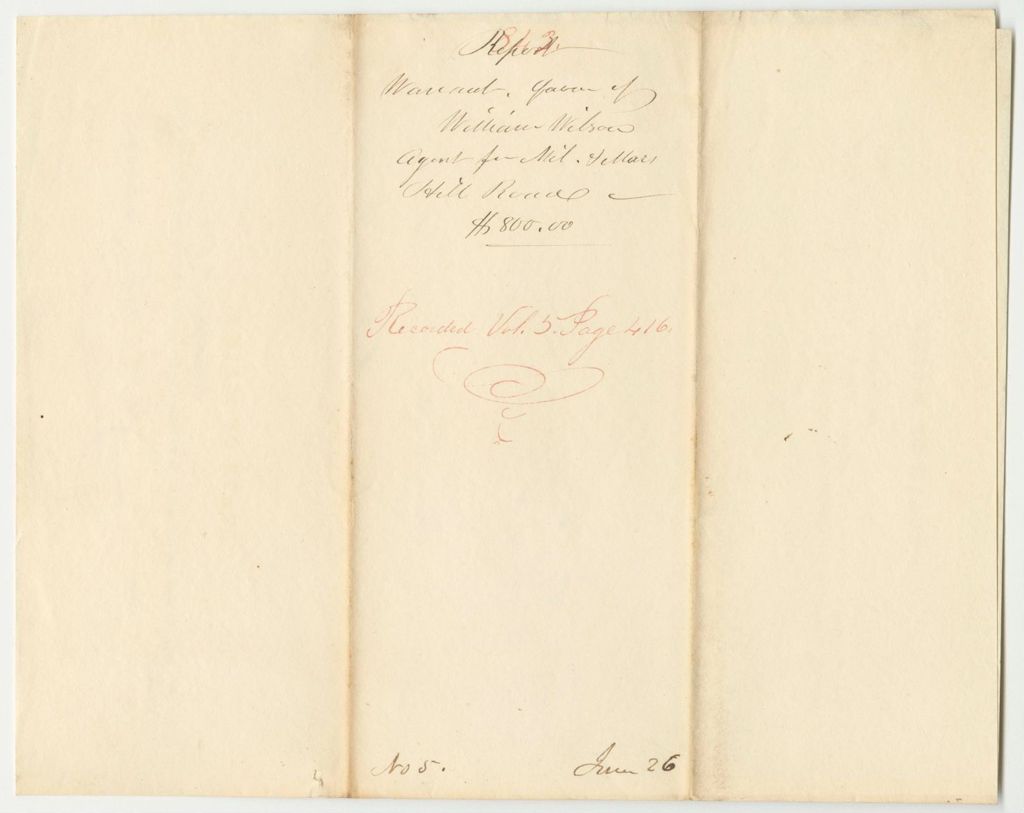 Report
Warrant. favor of
William Wilson
Agent for Mil. & Mars
Hill Road
$800.00
Recorded Vol. 5. Page 416.
No 5. June 26